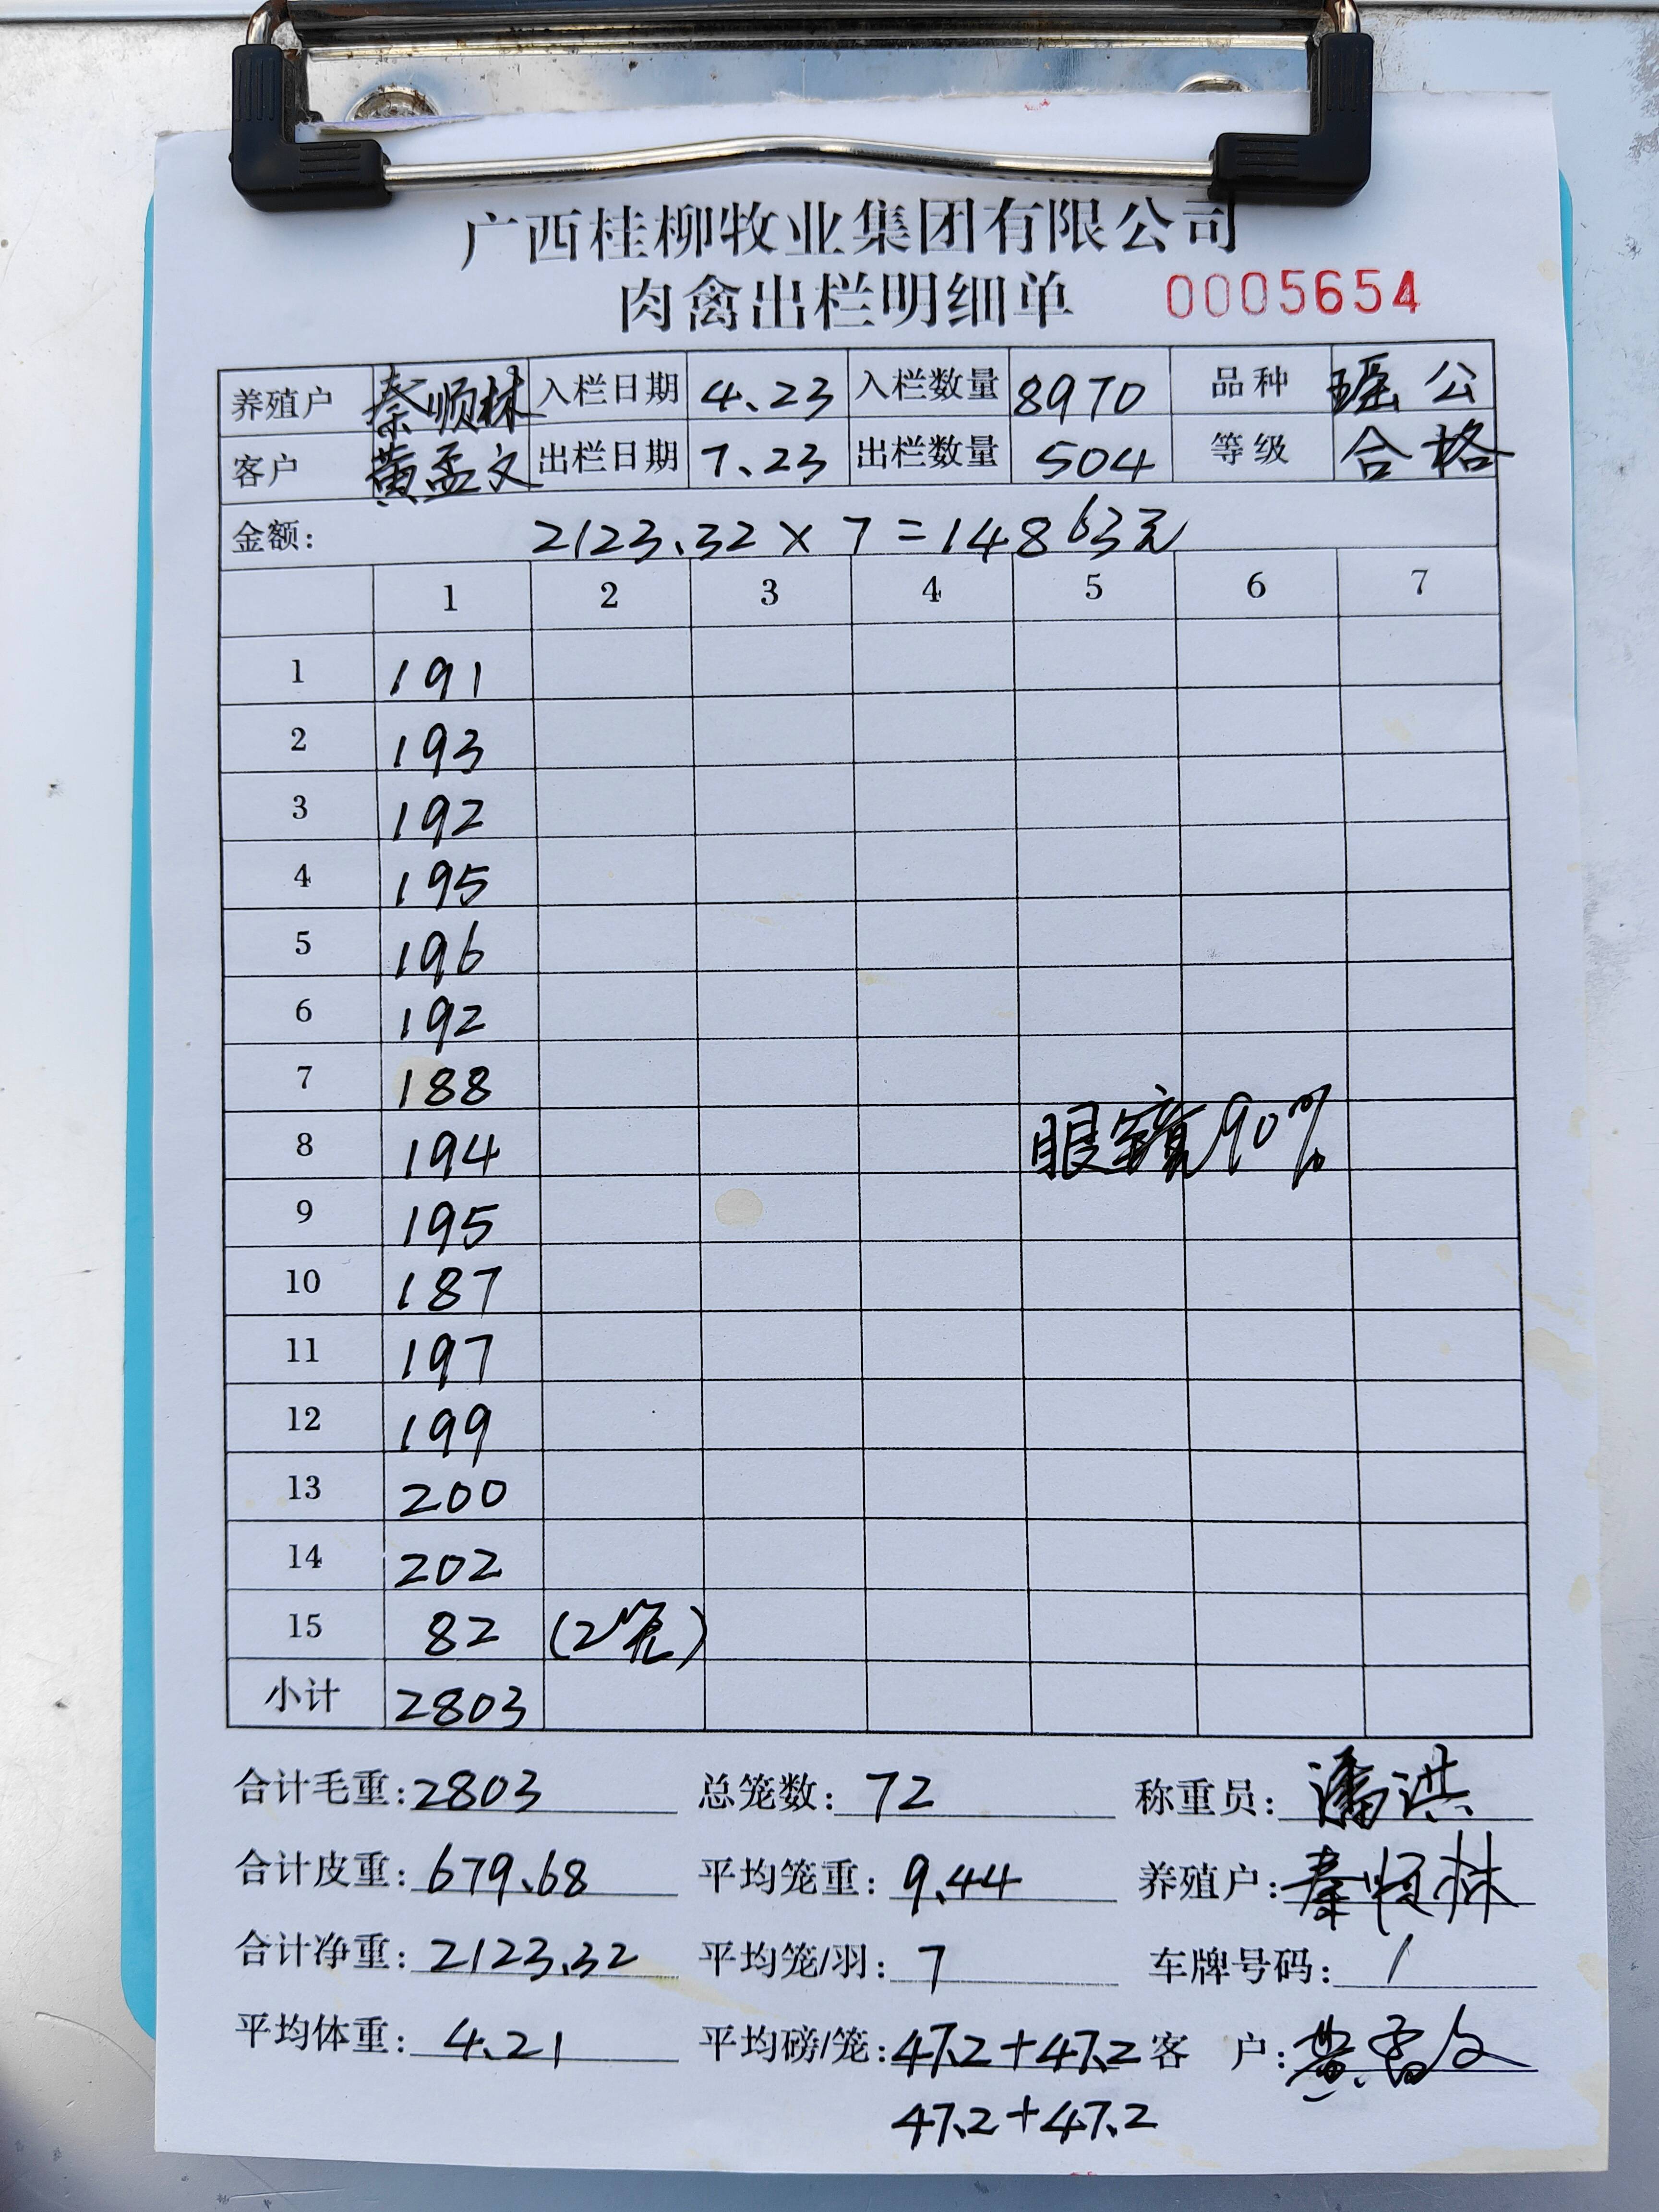 广西桂柳牧业集团有限公司
肉禽出栏明细单 0005654
养殖户 秦顺林 入栏日期 4.23 入栏数量 8970 品种 瑶公
客户 黄孟文 出栏日期 7.23 出栏数量 504 等级 合格
金额: 2123.32×7=14863元
1 2 3 4 5 6 7
1 191
2 193
3 192
4 195
5 196
6 192
7 188
8 194 眼镜90%
9 195
10 187
11 197
12 199
13 200
14 202
15 82 (2笼)
小计 2803
合计毛重:2803 总笼数:72 称重员:潘洪
合计皮重:679.68 平均笼重:9.44 养殖户:秦顺林
合计净重:2123.32 平均笼/羽:7 车牌号码:/
平均体重:4.21 平均磅/笼:47.2+47.2 客 户:黄孟文
47.2+47.2